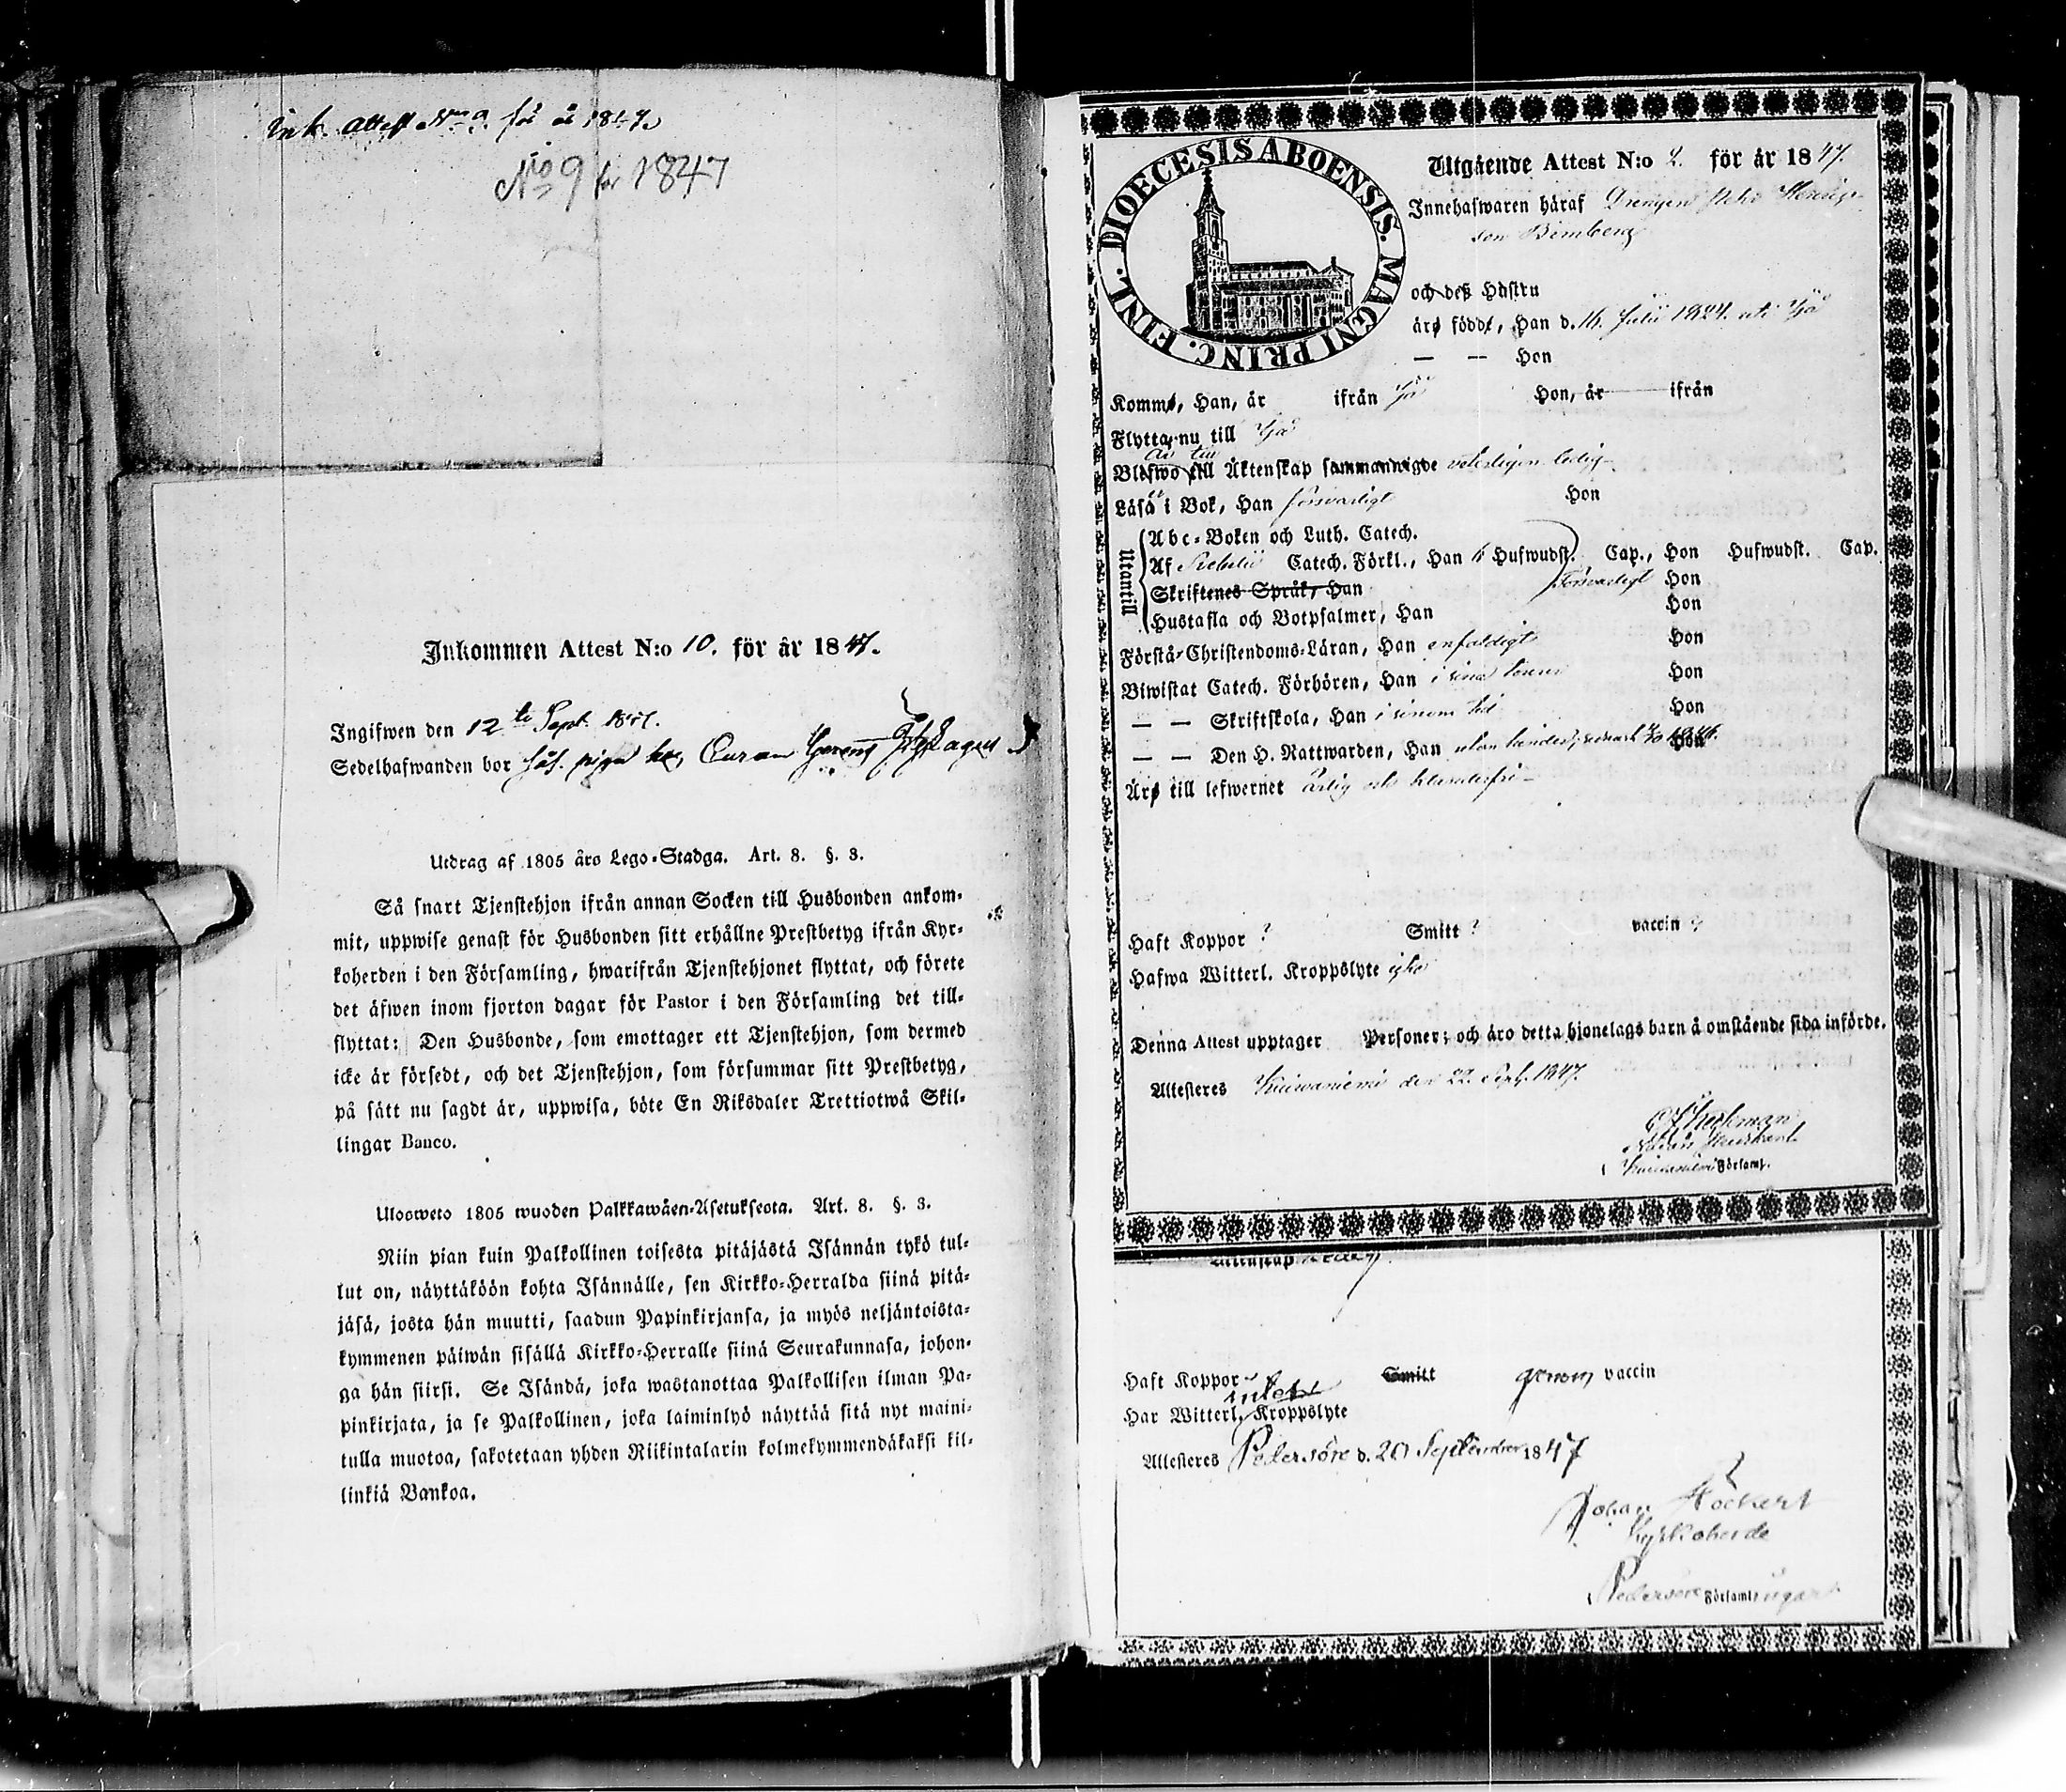 Ink. Attest No 9 för år 1847
No 9 för 1847
Inkommen Attest N:o 10. för år 1847.
Ingifwen den 12te Sept. 1847.
Sedelhafwanden bor såf. piga hos
Utdrag af 1805 åro Lego-Stadga. Art. 8. §. 3.
Så snart Tjenstehjon ifrån annan Socken till Husbonden ankom-
mit, uppwise genast för Husbonden sitt erhållne Prestbetyg ifrån Kyr-
koherden i den Församling, hwarifrån Tjenstehjonet flyttat, och förete
det äfwen inom fjorton dagar för Pastor i den Församling det till-
flyttat: Den Husbonde, som emottager ett Tjenstehjon, som dermed
icke är försedt, och det Tjenstehjon, som försummar sitt Prestbetyg,
på sätt nu sagdt är, uppwisa, böte En Riksdaler Trettiotwå Skil-
lingar Banco.
Ulosweto 1805 wuoden Palkkawäen-Asetuksesta. Art. 8. §. 3.
Niin pian kuin Palkollinen toisesta pitäjästä Isännän tykö tul-
lut on, näyttäköön kohta Isännälle, sen Kirkko-Herralda siinä pitä-
jäsä, josta hän muutti, saadun Papinkirjansa, ja myös neljäntoista-
kymmenen päiwän sisällä Kirkko-Herralle siinä Seurakunnasa, johon-
ga hän siirsi. Se Isändä, joka wastanottaa Palkollisen ilman Pa-
pinkirjata, ja se Palkollinen, joka laiminlyö näyttää sitä nyt maini-
tulla muotoa, sakotetaan yhden Riikintalarin kolmekymmendäkaksi kil-
linkiä Bankoa.
DIOECESIS ABOENSIS. MAGNI PRINC. FINL.
Utgående Attest N:o 2. för år 1847.
Innehafwaren häraf Drengen
son Bimberg
och deß Hustru
äro födde, Han d. 16. Julii 1824. uti Ijo
— — Hon
Komme, Han, år ifrån Ijo Hon, år ifrån
Flytta nu till Ijo
är till
Blefwo till Äktenskap sammanwigde veterligen ledig
Läsa i Bok, Han försvarligt Hon
Utantill
Abc-Boken och Luth. Catech.
Af Catech. Förkl., Han 6 Hufwudst. Cap., Hon Hufwudst. Cap.
Skriftenes Språk, Han försvarligt Hon
Hustafla och Botpsalmer, Han Hon
Förstå Christendoms-Läran, Han enfaldigt Hon
Biwistat Catech. Förhören, Han i sina Hon
— — Skriftskola, Han i sinom tid Hon
— — Den H. Nattwarden, Han utan hinder, senast Hon
Äro till lefwernet ärlig och
Haft Koppor ? Smitt ? vaccin ?
Hafwa Witterl. Kroppslyte ej
Denna Attest upptager Personer; och äro detta hjonelags barn å omstående sida införde.
Attesteres Kuiwaniemi den 22. Sept. 1847.
Kuiwaniemi Församl.
Äktenskap ledig
Haft Koppor Smitt genom vaccin
intet
Har Witterl. Kroppslyte
Attesteres Pedersöre d. 20 September 1847
Johan Höckert
Kyrkoherde
Pedersöre Församlingar